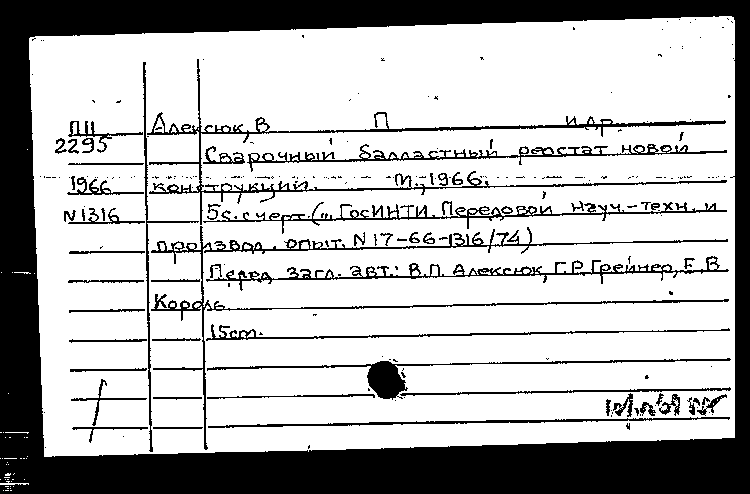 ПН Алексюк, В П и др.
2295
Сварочный балластный реостат новой
1966 конструкции. М., 1966.
N1316 5с. с черт. („ ГосИНТИ. Передовой науч.-техн. и
производ. опыт. N 17-66-1316/74)
Перед загл. авт.: В.П. Алексюк, Г.Р. Грейнер, Е.В.
Король
15ст.